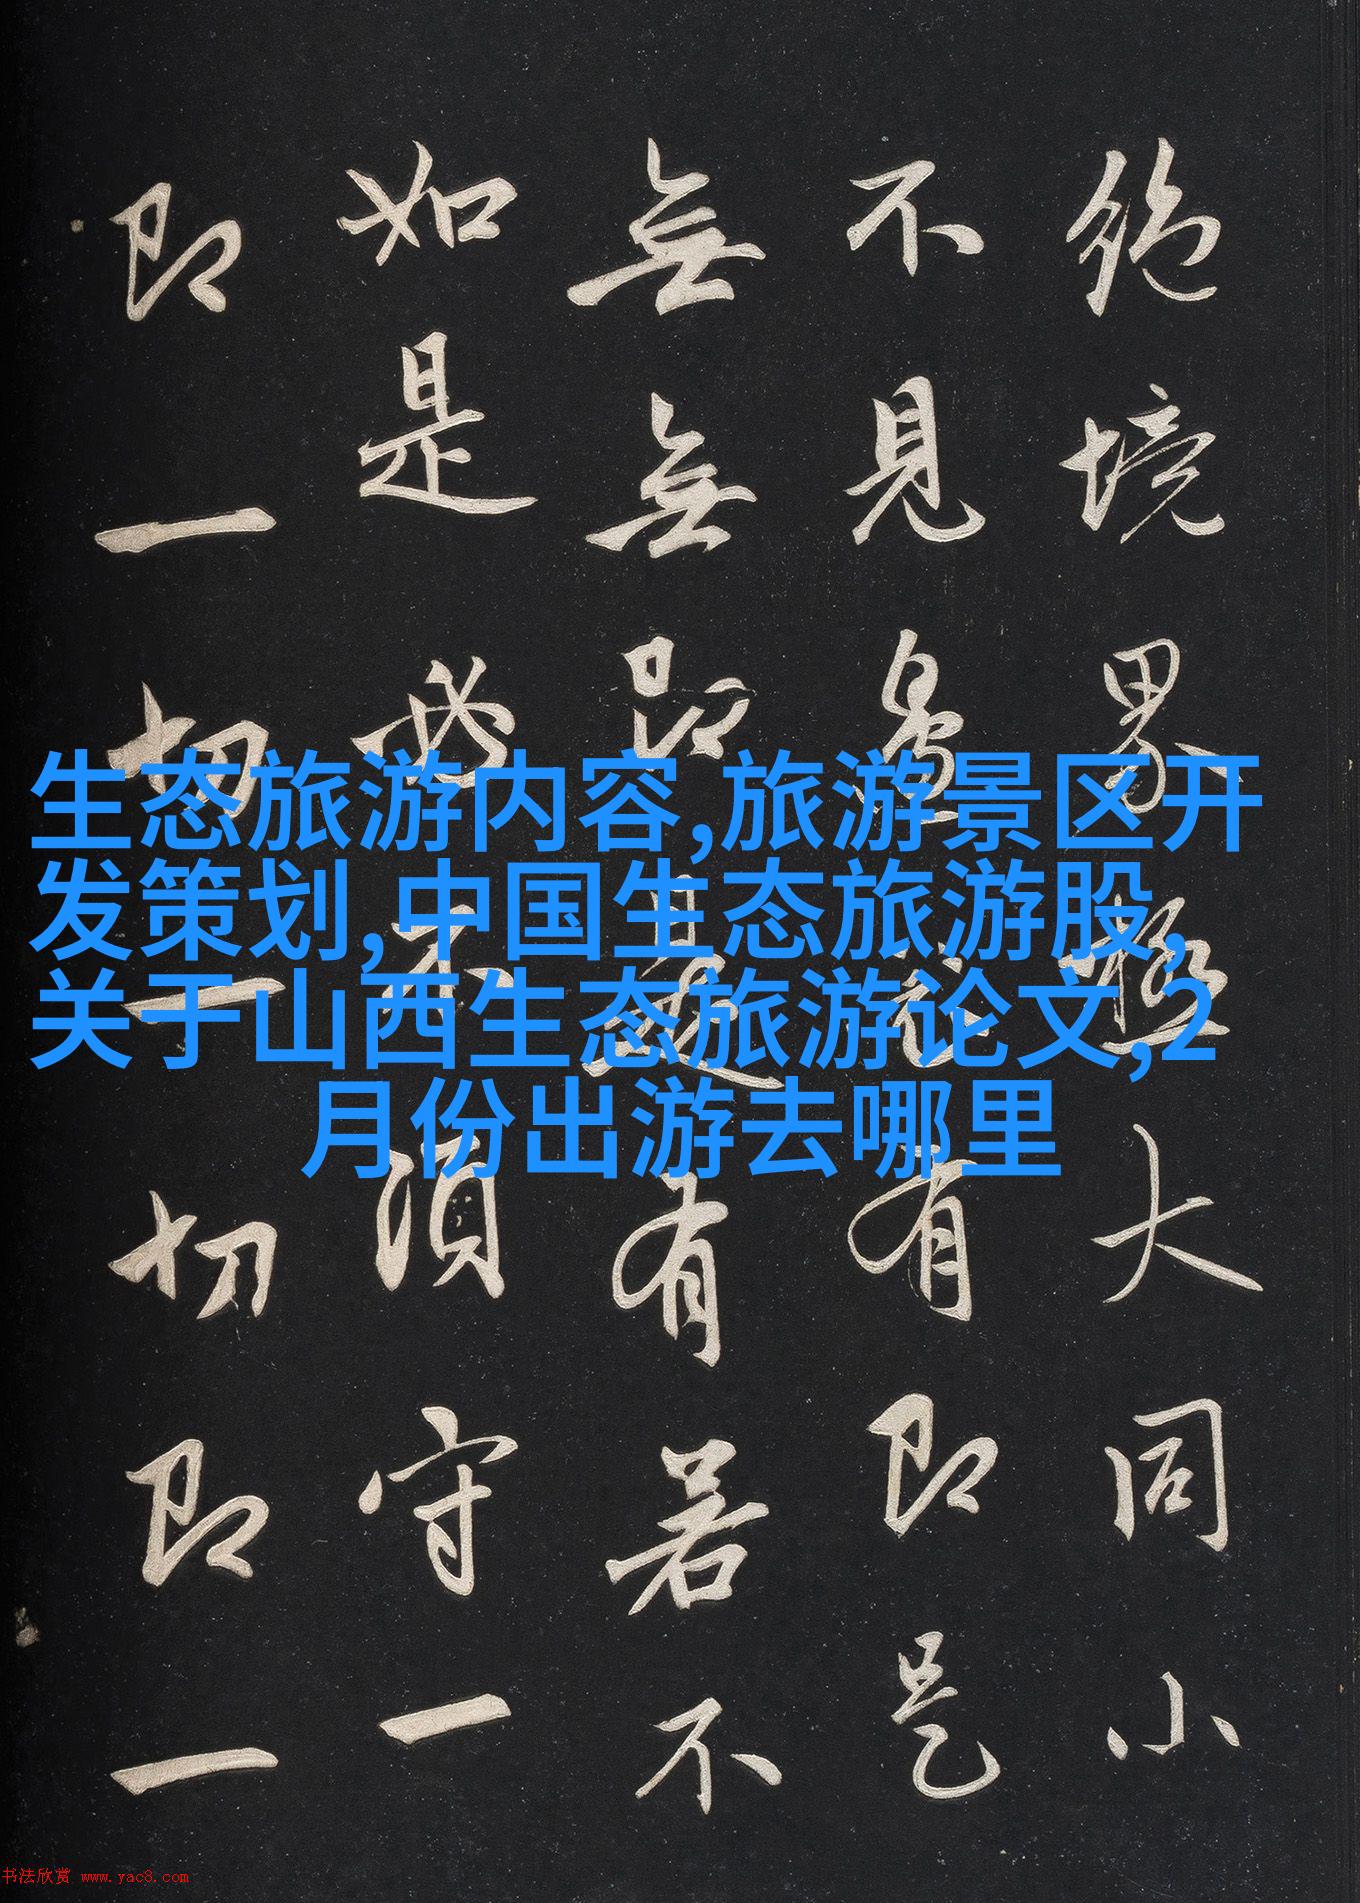 絶境界極大同小
不見邊表有即是
無無即是有若不
如是必不須守一
即一切一切即一
生态旅游内容,旅游景区开
发策划,中国生态旅游股,
关于山西生态旅游论文,2
月份出游去哪里
书法欣赏 www.yac8.com